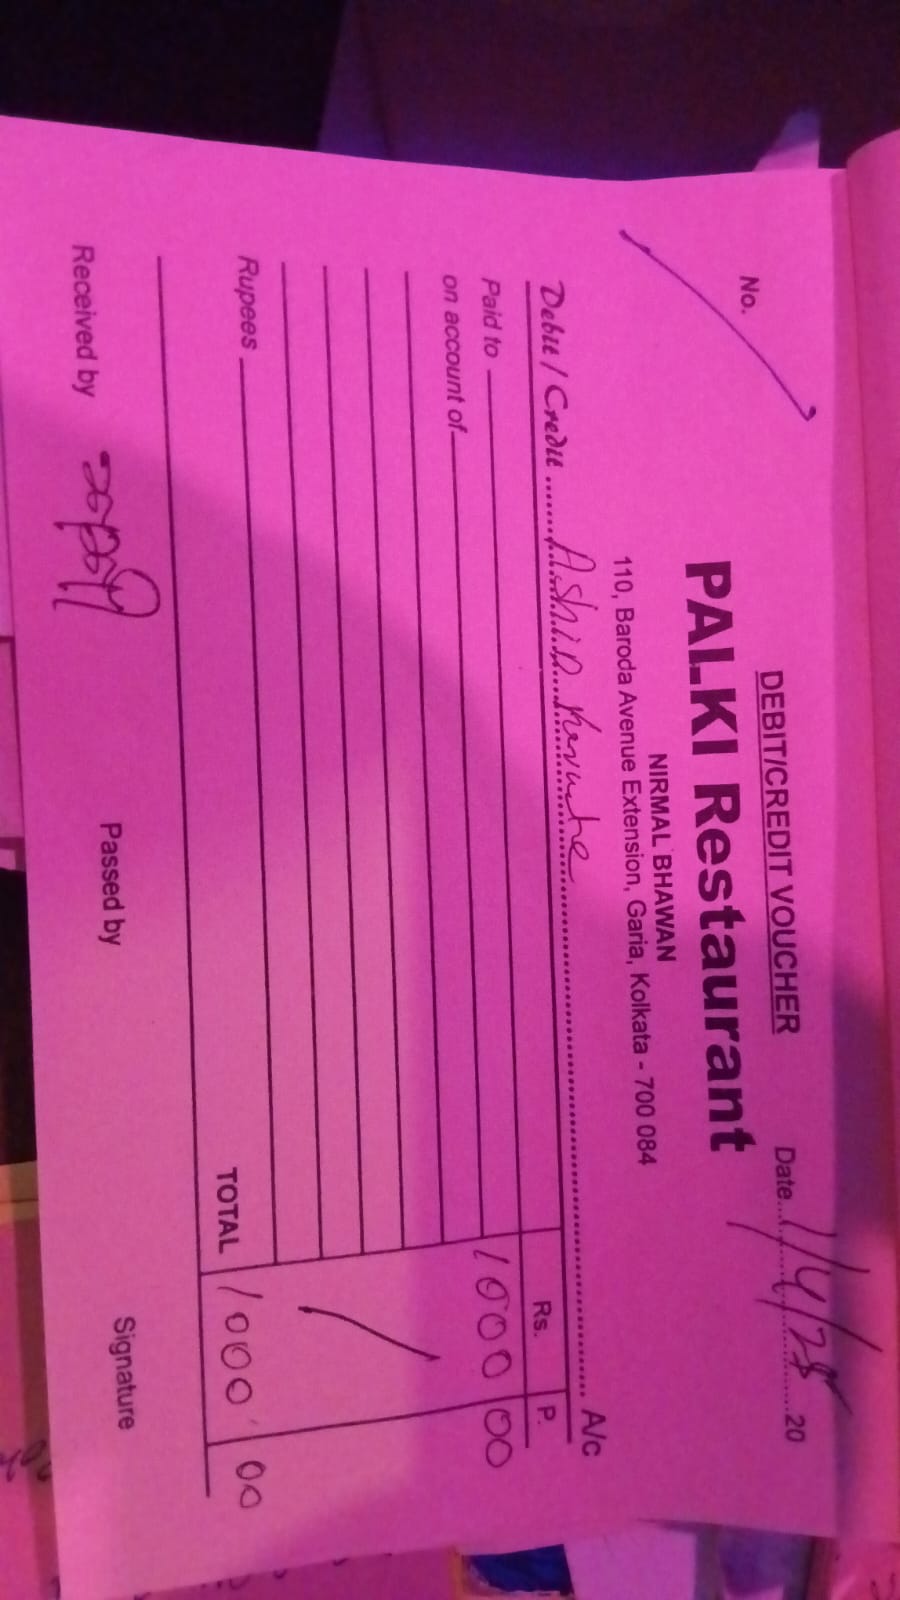 DEBIT/CREDIT VOUCHER
No. Date 1/4/25 20
PALKI Restaurant
NIRMAL BHAWAN
110, Baroda Avenue Extension, Garia, Kolkata - 700 084
Debit / Credit ........ Ashib ........ A/c
Rs. P.
Paid to 1000 00
on account of
Rupees TOTAL 1000 00
Received by Passed by Signature